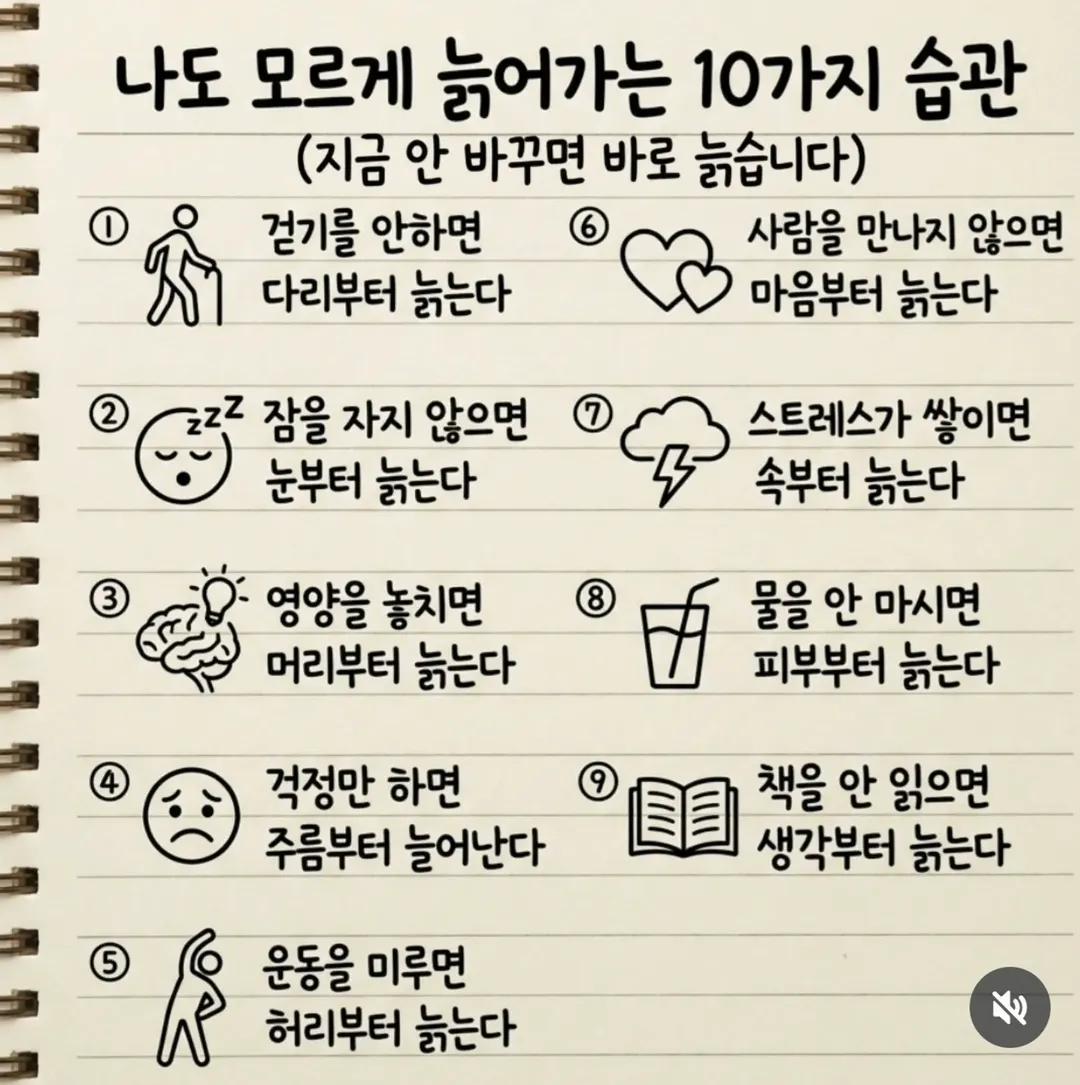 나도 모르게 늙어가는 10가지 습관
(지금 안 바꾸면 바로 늙습니다)
① 걷기를 안하면
다리부터 늙는다
② zzZ 잠을 자지 않으면
눈부터 늙는다
③ 영양을 놓치면
머리부터 늙는다
④ 걱정만 하면
주름부터 늘어난다
⑤ 운동을 미루면
허리부터 늙는다
⑥ 사람을 만나지 않으면
마음부터 늙는다
⑦ 스트레스가 쌓이면
속부터 늙는다
⑧ 물을 안 마시면
피부부터 늙는다
⑨ 책을 안 읽으면
생각부터 늙는다